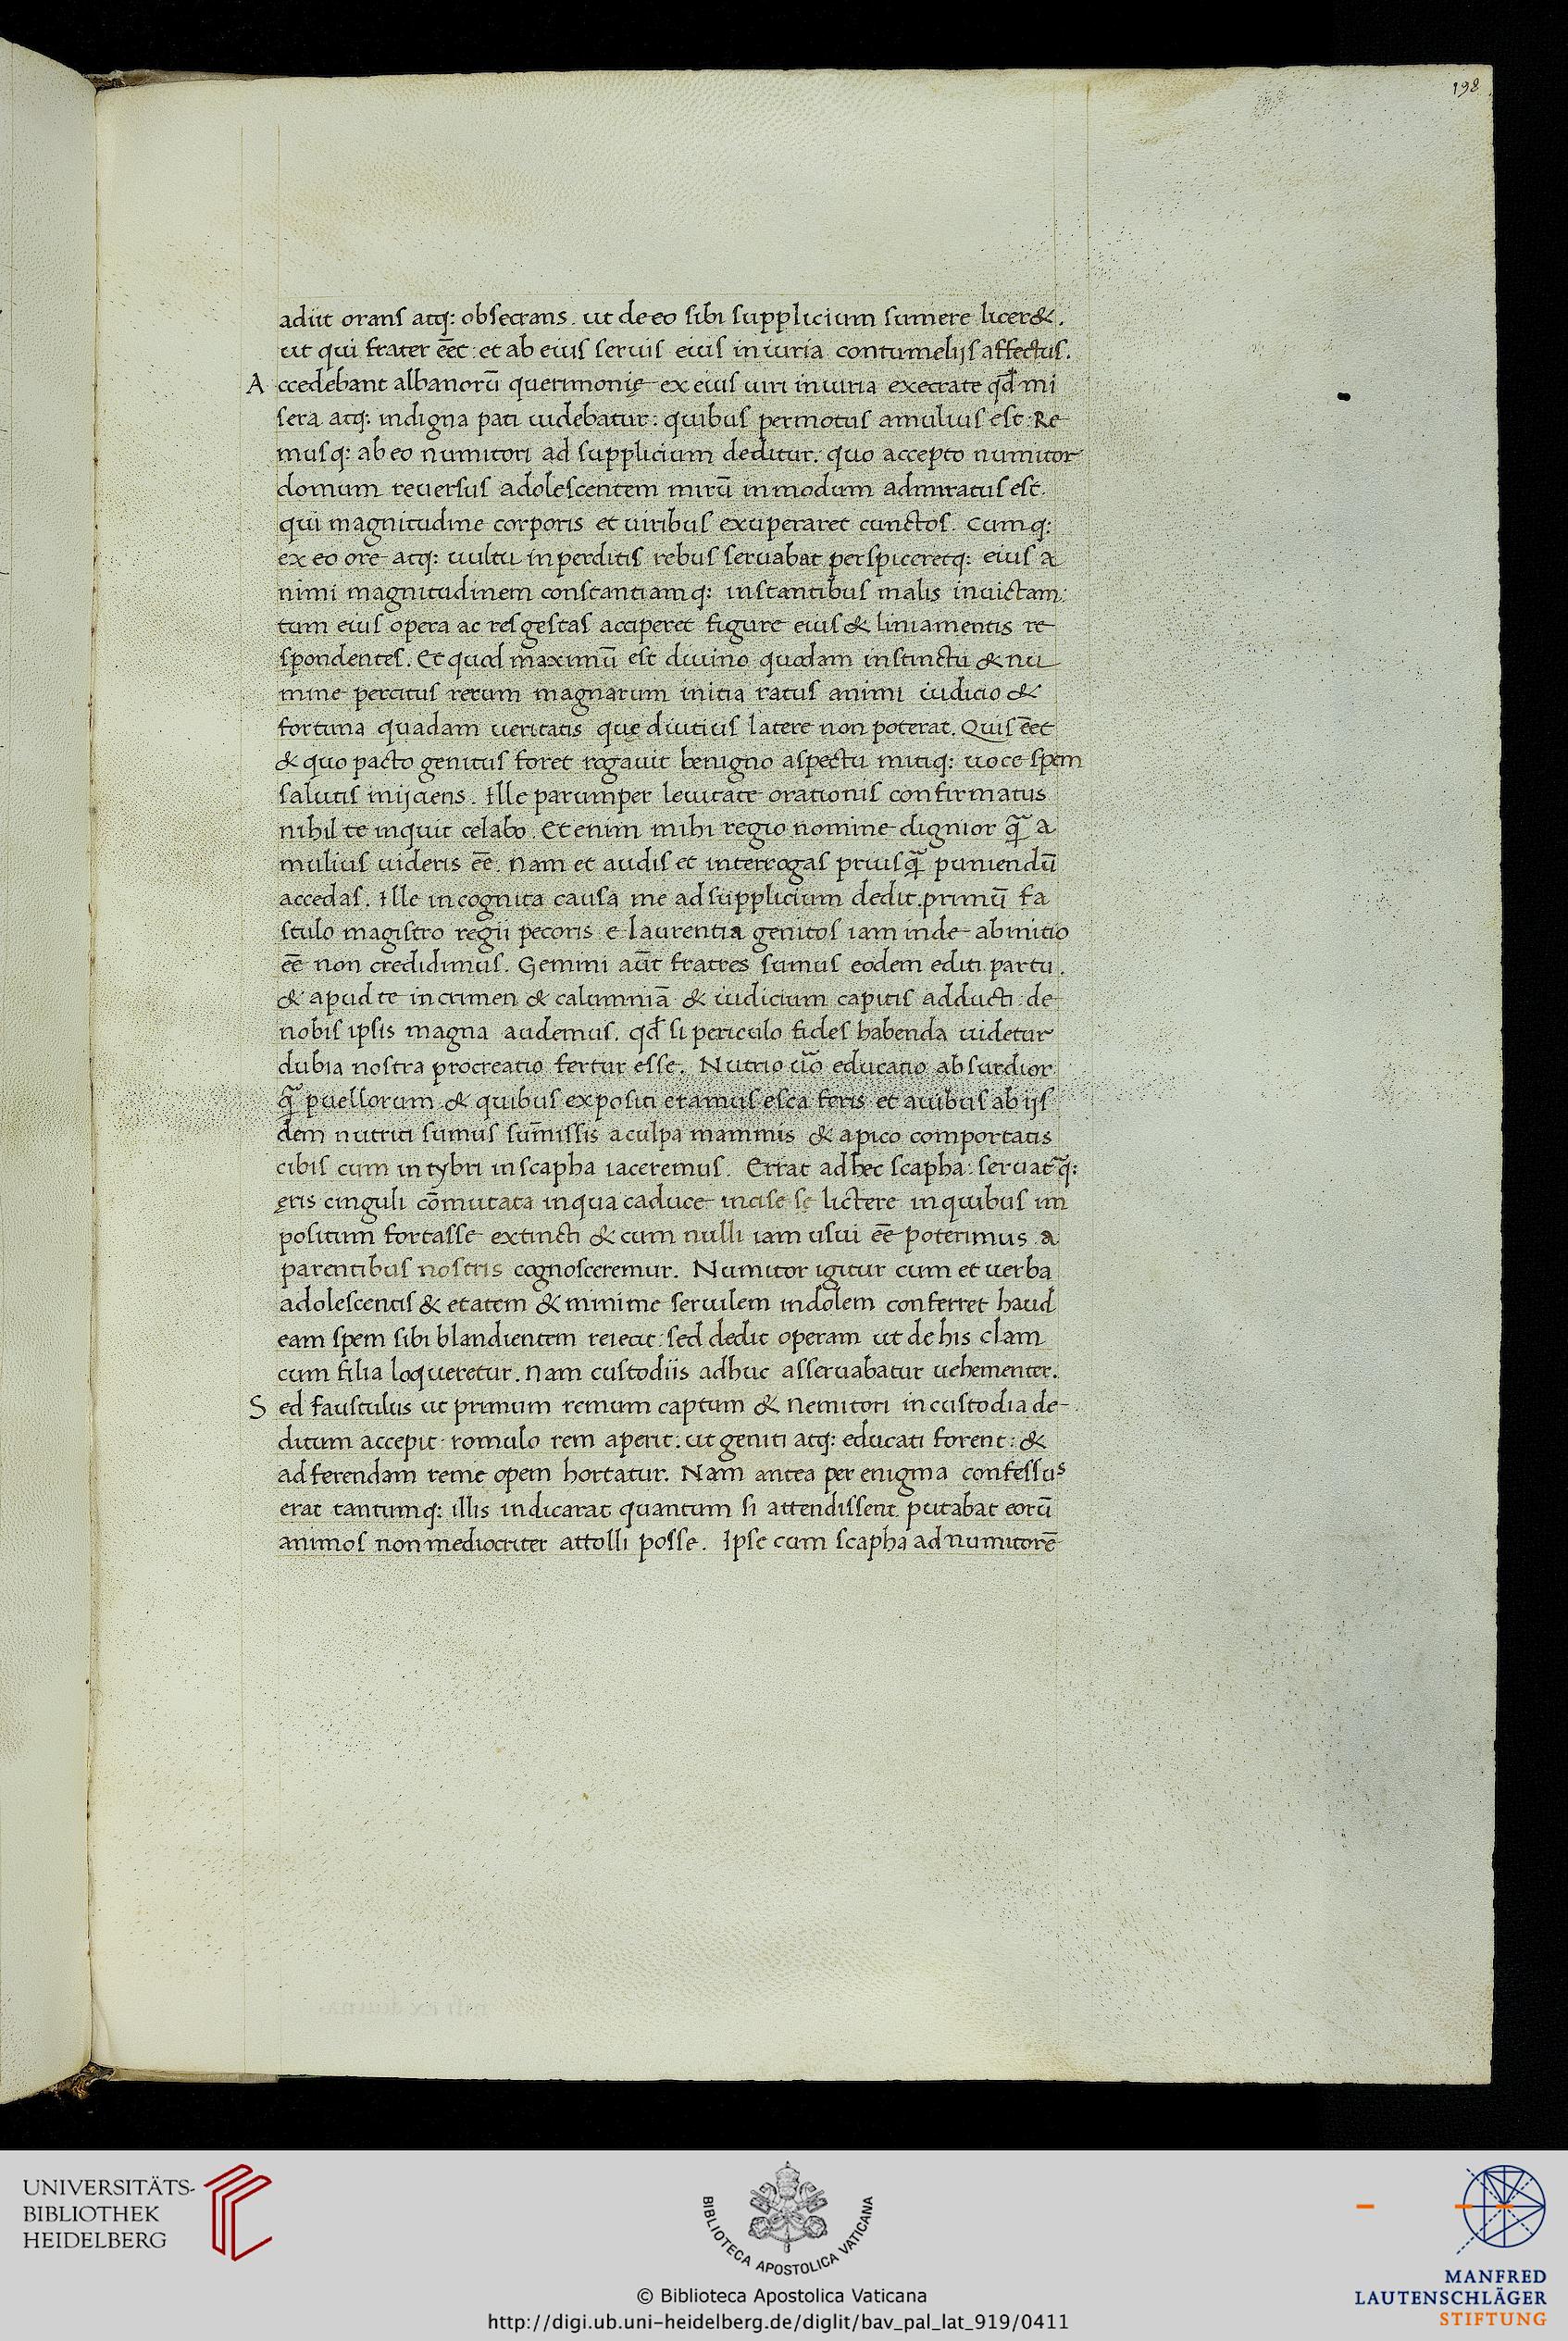 198
adiit orans atq: obsecrans. ut de eo sibi supplicium sumere licer&.
ut qui frater eēt: et ab eius seruis eius iniuria contumelijs affectus.
Accedebant albanorū querimonię ex eius uiri iniuria execrate qđ mi
sera atq: indigna pati uidebatur: quibus permotus amulius est: Re
musq: ab eo numitori ad supplicium deditur. quo accepto numitor
domum reuersus adolescentem mirū inmodum admiratus est.
qui magnitudine corporis et uiribus exuperaret cunctos. Cumq:
ex eo ore atq: uultu in perditis rebus seruabat perspiceretq: eius a
nimi magnitudinem constantiamq: instantibus malis inuictam:
tum eius opera ac res gestas acciperet figure eius & liniamentis re
spondentes. Et quod maximū est diuino quodam instinctu & nu
mine percitus rerum magnarum initia ratus animi iudicio &
fortuna quadam ueritatis quę diutius latere non poterat. Quis eēt
& quo pacto genitus foret rogauit benigno aspectu mitiq: uoce spem
salutis inijciens. Ille parumper leuitate orationis confirmatus
nihil te inquit celabo. Et enim mihi regio nomine dignior q̄ a
mulius uideris eē. Nam et audis et interrogas priusq̄ puniendū
accedas. Ille incognita causa me ad supplicium dedit. primū fa
stulo magistro regii pecoris e laurentia genitos iam inde ab initio
eē non credidimus. Gemini aūt fratres sumus eodem editi partu.
& apud te in crimen & calumniā & iudicium capitis adducti: de
nobis ipsis magna audemus. qđ si periculo fides habenda uidetur
dubia nostra procreatio fertur esse. Nutrio ūo educatio absurdior
q̄ puellorum & quibus expositi eramus esca feris et auibus ab ijs
dem nutriti sumus sum̄issis a culpa mammis & a pico comportatis
cibis cum in tybri in scapha iaceremus. Errat adhec scapha: seruatq̄:
ęris cinguli cōmutata in qua caduce incise sę lictere in quibus im
positum fortasse extincti & cum nulli iam usui eē poterimus a
parentibus nostris cognosceremur. Numitor igitur cum et uerba
adolescentis & etatem & minime seruilem indolem conferret haud
eam spem sibi blandientem reiecit: sed dedit operam ut de his clam
cum filia loqueretur. Nam custodiis adhuc asseruabatur uehementer.
Sed faustulus ut primum remum captum & Nemitori in custodia de-
ditum accepit romulo rem aperit. ut geniti atq: educati forent: &
ad ferendam reme opem hortatur. Nam antea per enigma confessus
erat tantumq: illis indicarat quantum si attendissent putabat eorū
animos non mediocriter attolli posse. Ipse cum scapha ad numitorē
UNIVERSITÄTS-
BIBLIOTHEK
HEIDELBERG
BIBLIOTECA APOSTOLICA VATICANA
© Biblioteca Apostolica Vaticana
http://digi.ub.uni-heidelberg.de/diglit/bav_pal_lat_919/0411
MANFRED
LAUTENSCHLÄGER
STIFTUNG